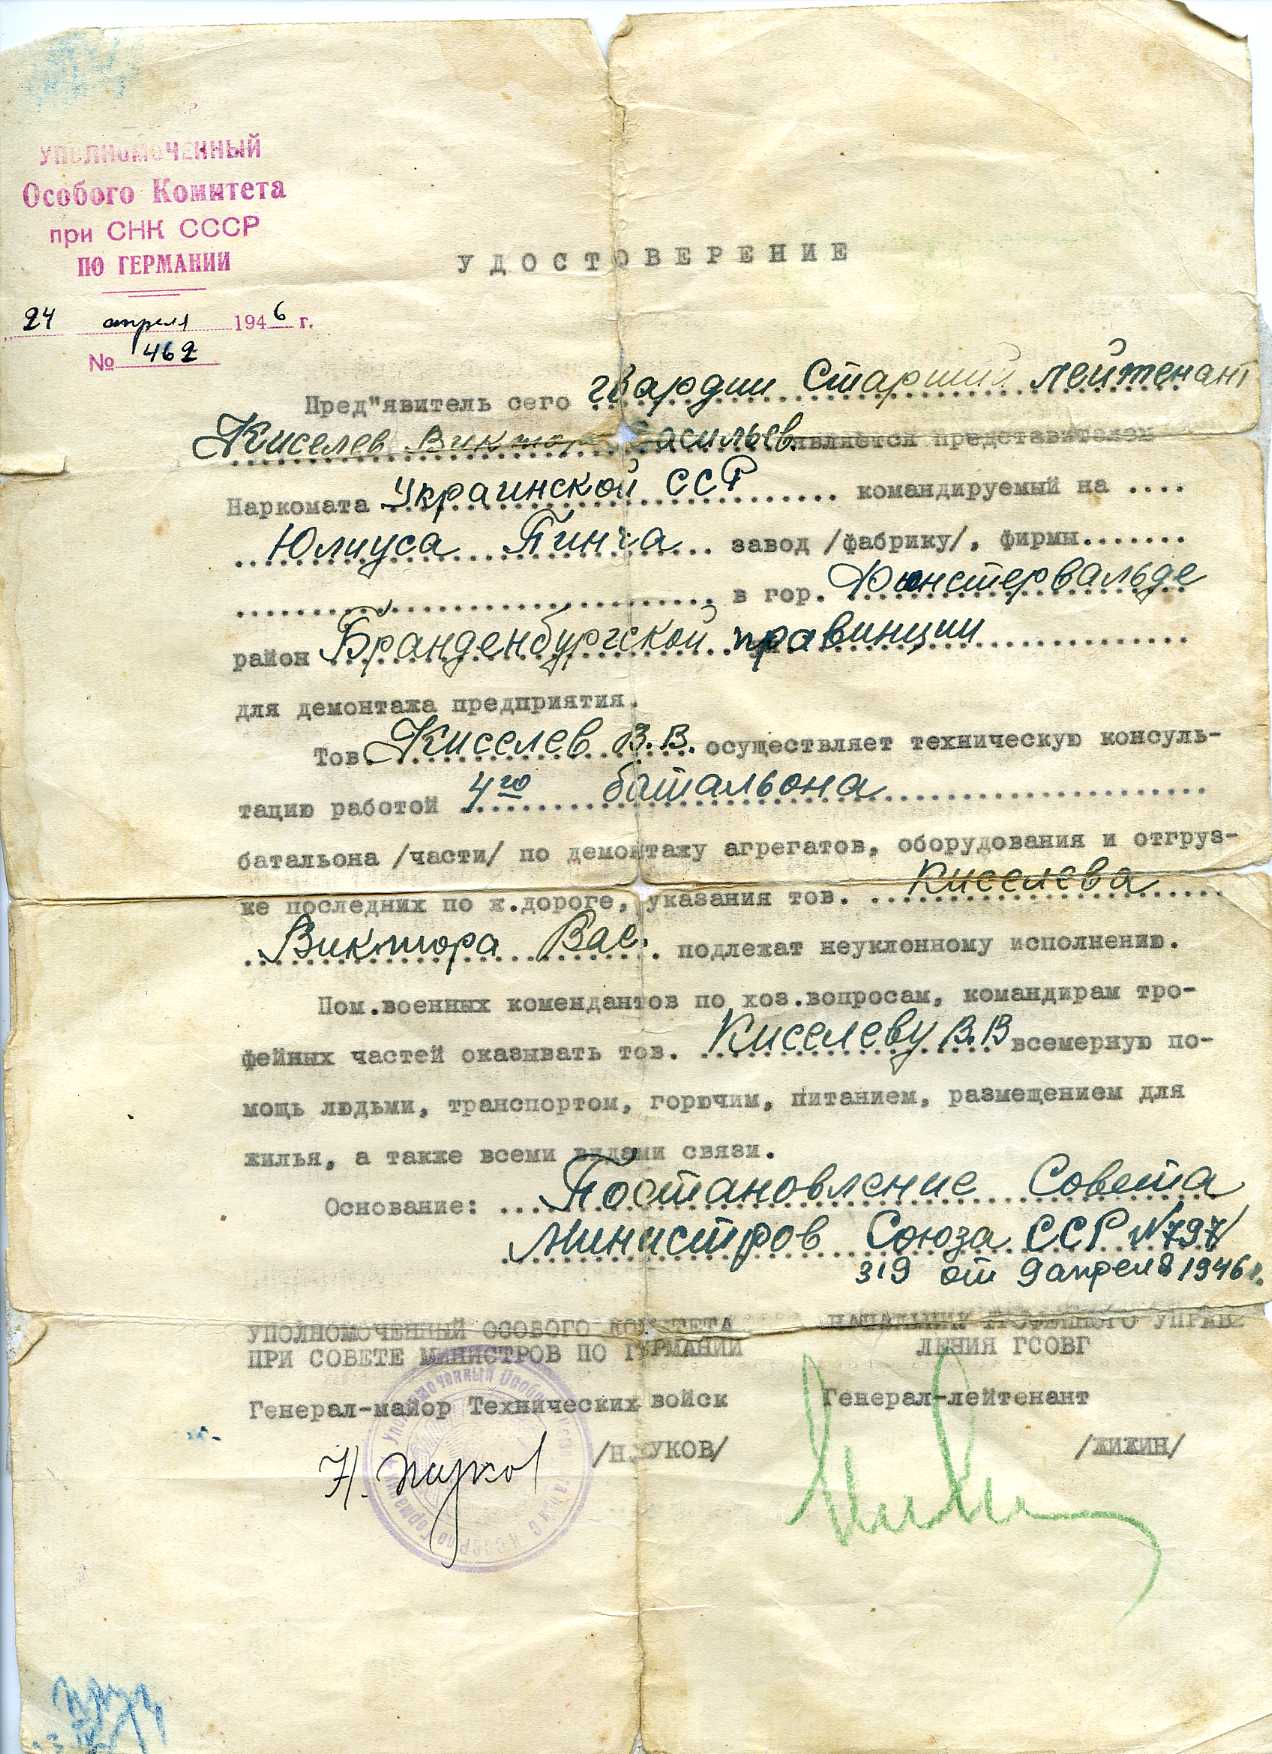 УПОЛНОМОЧЕННЫЙ
Особого Комитета
при СНК СССР
ПО ГЕРМАНИИ
24 апреля 1946 г.
№ 462
УДОСТОВЕРЕНИЕ
Пред"явитель сего гвардии Старший лейтенант
Киселев Виктор Васильев. является представителем
Наркомата Украинской ССР командируемый на ....
Юлиуса Пинча завод /фабрику/, фирмы.......
в гор. Финстервальде
район Бранденбургской правинции
для демонтажа предприятия.
Тов. Киселев В.В. осуществляет техническую консуль-
тацию работой 4го батальона
батальона /части/ по демонтажу агрегатов, оборудования и отгруз-
ке последних по ж.дороге, указания тов. Киселева
Виктора Вас. подлежат неуклонному исполнению.
Пом.военных комендантов по хоз.вопросам, командирам тро-
фейных частей оказывать тов. Киселеву В.В всемерную по-
мощь людьми, транспортом, горючим, питанием, размещением для
жилья, а также всеми видами связи.
Основание: Постановление Совета
Министров Союза ССР №797/
319 от 9 апреля 1946г.
УПОЛНОМОЧЕННЫЙ ОСОБОГО КОМИТЕТА
ПРИ СОВЕТЕ МИНИСТРОВ ПО ГЕРМАНИИ
НАЧАЛЬНИК ТРОФЕЙНОГО УПРАВ
ЛЕНИЯ ГСОВГ
Генерал-майор Технических войск
Генерал-лейтенант
/Н.ЖУКОВ/
/ЖИЖИН/
Н. Жуков